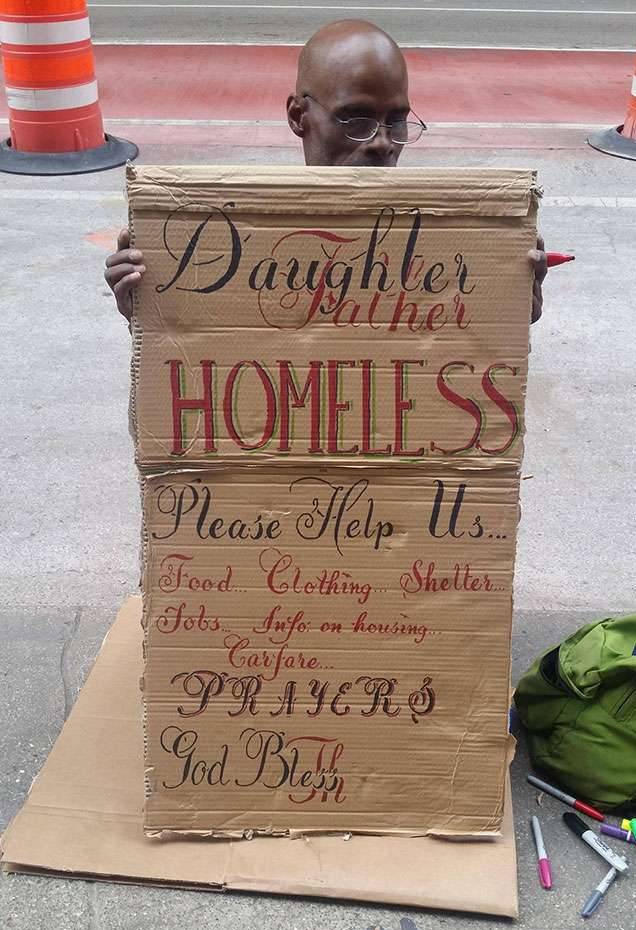 Daughter
Father
HOMELESS
Please Help Us...
Food... Clothing... Shelter...
Jobs... Info: on housing...
Carfare...
PRAYERS
God Bless
Th